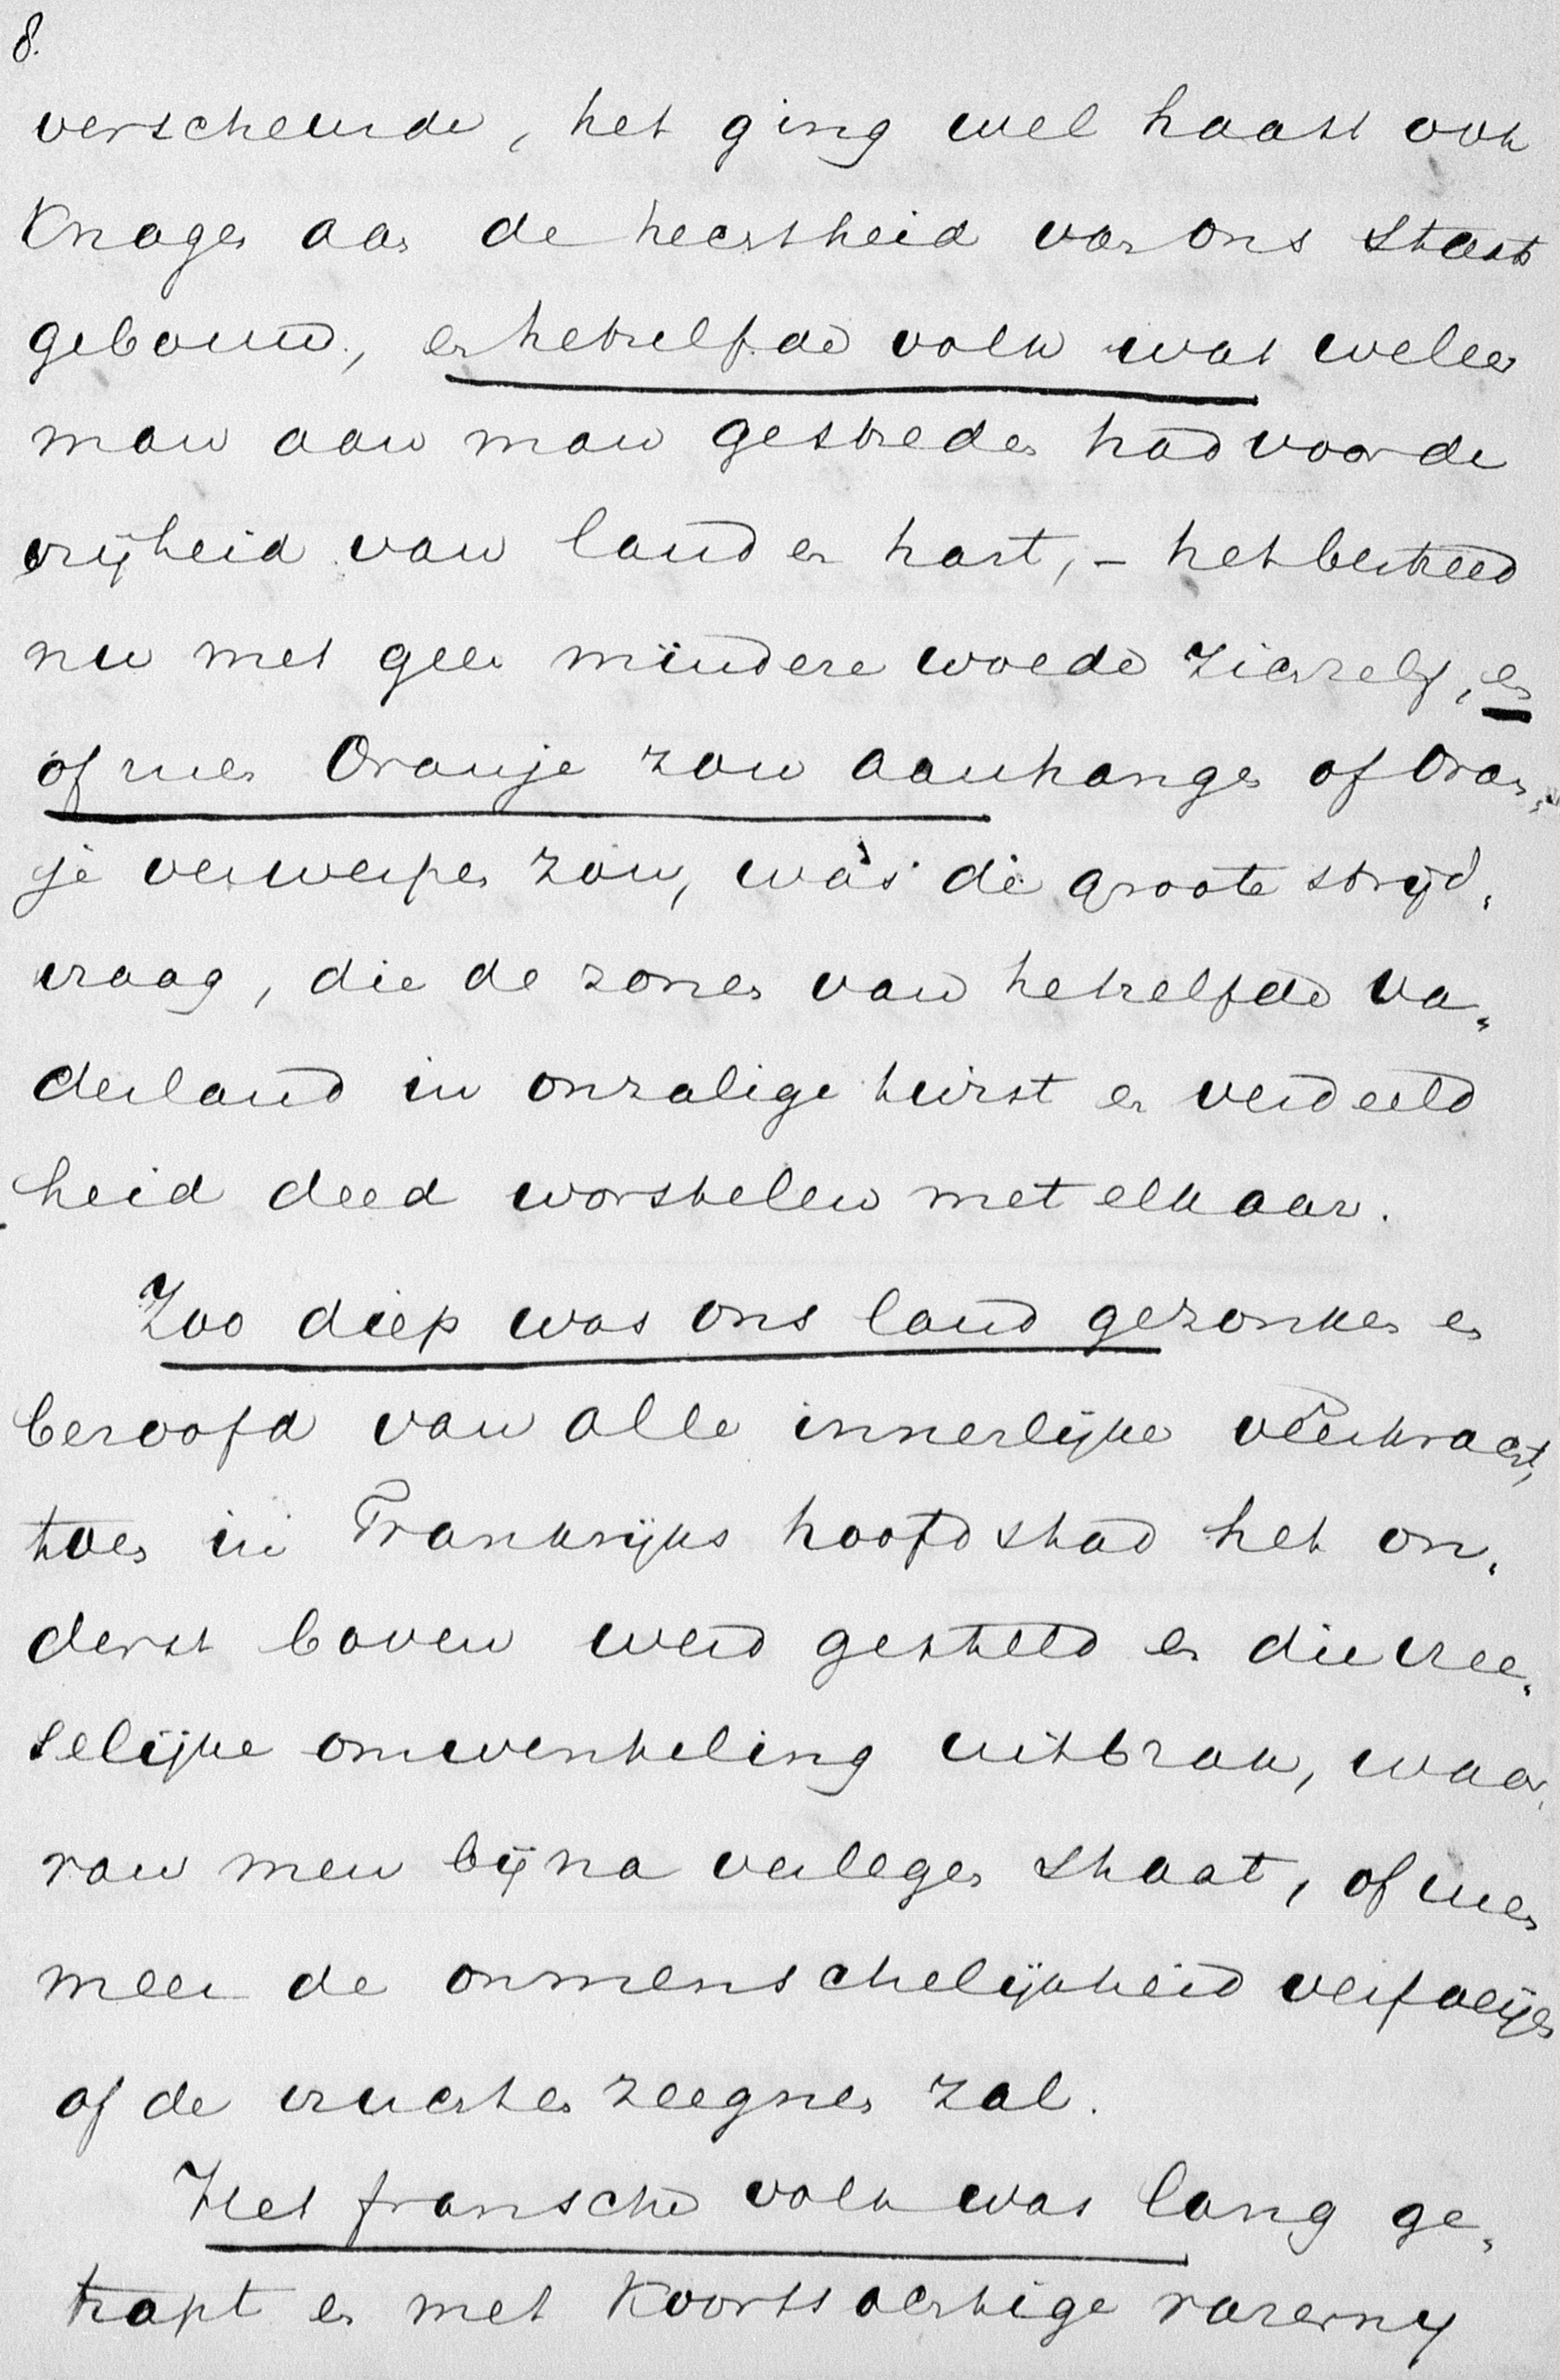 8.
verscheurde, het ging wel haast ook
Knagen aan de hechtheid van ons Staats
gebouw, en hetzelfde volk wat weleer
man aan man gestreden had voor de
vrijheid van land en hart, – het bestreed
nu met geen mindere woede zichzelf, en
of men Oranje zou aanhangen of Oran„
je verwerpen zou, was de groote strijd„
vraag, die de zonen van hetzelfde va„
derland in onzalige twist en verdeeld
heid deed worstelen met elkaar.
Zoo diep was ons land gezonken en
beroofd van alle innerlijke veerkracht,
toen in Frankrijks hoofdstad het on„
derst boven werd gesteld en die vree„
selijke omwenteling uitbrak, waar„
van men bijna verlegen staat, of men
meer de onmenschelijkheid verfoeijen
of de vruchten zeegnen zal.
Het fransche volk was lang ge„
trapt en met Koortsachtige razerny